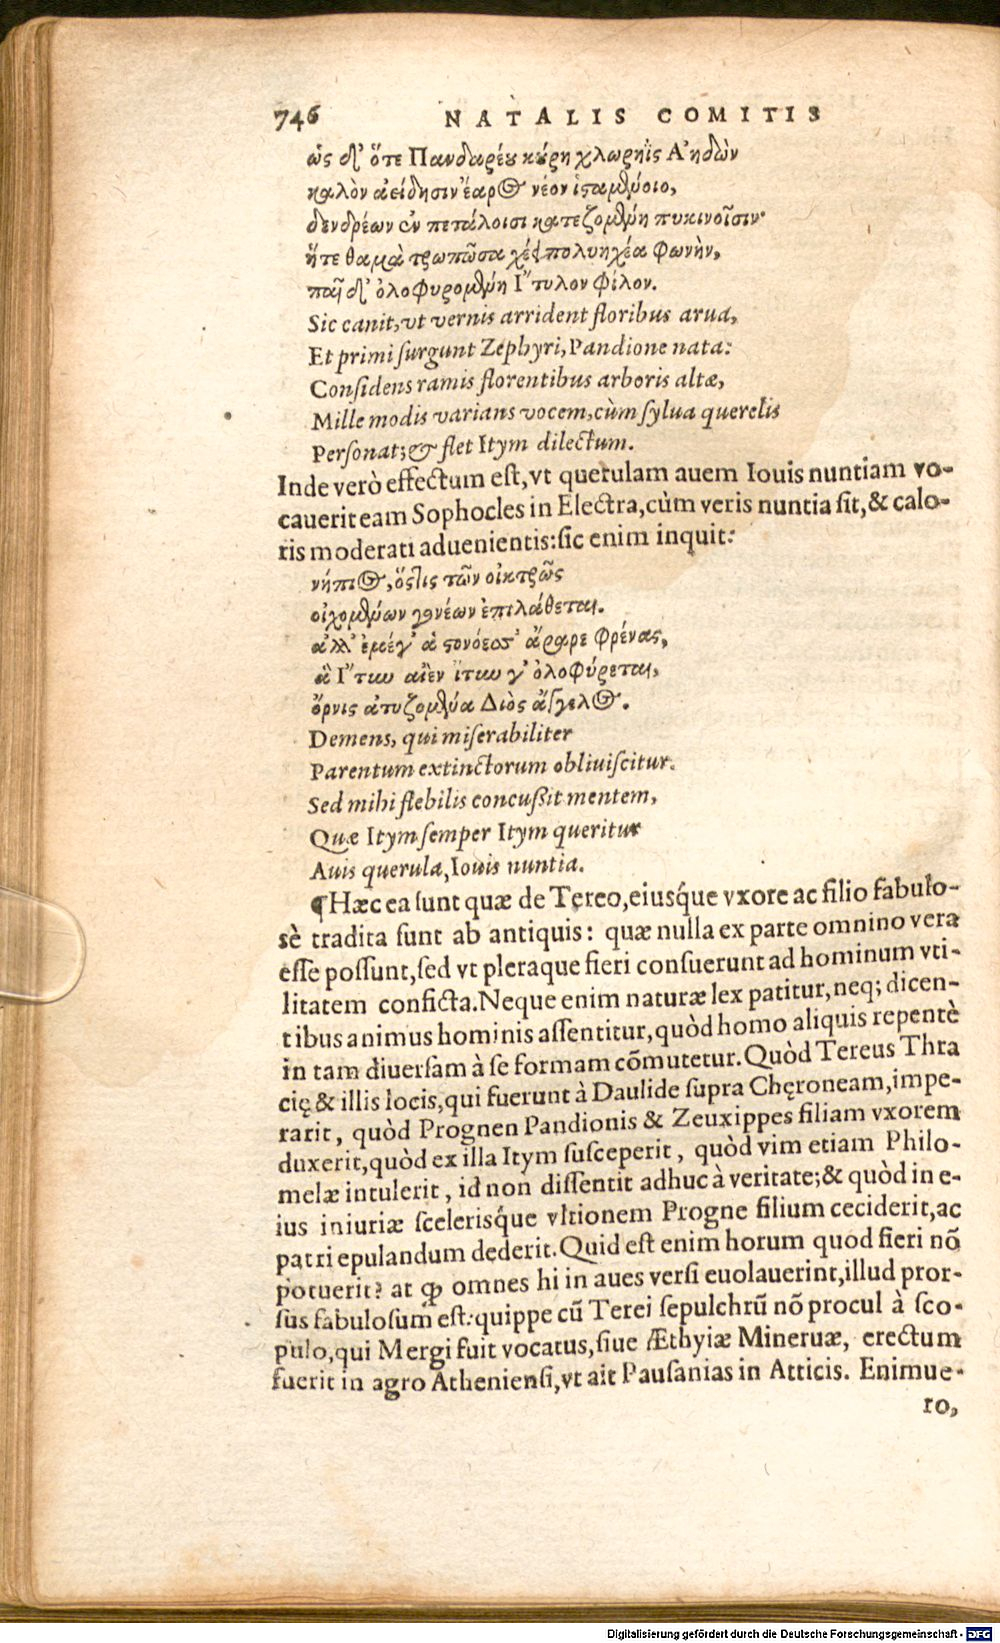 746 NATALIS COMITIS
ὡς δ' ὅτε Πανδαρέου κούρη χλωρηῒς Ἀηδὼν
καλὸν ἀείδησιν ἔαρος νέον ἱσταμένοιο,
δενδρέων ἐν πετάλοισι κατεζομένη πυκινοῖσιν·
ἥτε θαμὰ τρωπῶσα χέει πολυηχέα φωνὴν,
παῖδ' ὀλοφυρομένη Ἴτυλον φίλον.
Sic canit, vt vernis arrident floribus arua,
Et primi surgunt Zephyri, Pandione nata:
Considens ramis florentibus arboris altæ,
Mille modis varians vocem, cùm sylua querelis
Personat; & flet Itym dilectum.
Inde verò effectum est, vt querulam auem Iouis nuntiam vo-
cauerit eam Sophocles in Electra, cùm veris nuntia sit, & calo-
ris moderati aduenientis: sic enim inquit:
νήπιος, ὅστις τῶν οἰκτρῶς
οἰχομένων γονέων ἐπιλάθεται.
ἀλλ' ἐμέγ' ἁ στονόεσσ' ἄραρε φρένας,
ἃ Ἴτυν αἰὲν ἴτυν γ' ὀλοφύρεται,
ὄρνις ἀτυζομένα Διὸς ἄγγελος.
Demens, qui miserabiliter
Parentum extinctorum obliuiscitur.
Sed mihi flebilis concussit mentem,
Quæ Itym semper Itym queritur
Auis querula, Iouis nuntia.
¶Hæc ea sunt quæ de Tereo, eiusq́ue vxore ac filio fabulo-
sè tradita sunt ab antiquis: quæ nulla ex parte omnino vera
esse possunt, sed vt pleraque fieri consuerunt ad hominum vti-
litatem conficta. Neque enim naturæ lex patitur, neq; dicen-
tibus animus hominis assentitur, quòd homo aliquis repentè
in tam diuersam à se formam cõmutetur. Quòd Tereus Thra
cię & illis locis, qui fuerunt à Daulide supra Chęroneam, impe-
rarit, quòd Prognen Pandionis & Zeuxippes filiam vxorem
duxerit, quòd ex illa Itym susceperit, quòd vim etiam Philo-
melæ intulerit, id non dissentit adhuc à veritate; & quòd in e-
ius iniuriæ scelerisq́ue vltionem Progne filium ceciderit, ac
patri epulandum dederit. Quid est enim horum quod fieri nõ
potuerit? at ꝙ omnes hi in aues versi euolauerint, illud pror-
sus fabulosum est: quippe cũ Terei sepulchrũ nõ procul à sco-
pulo, qui Mergi fuit vocatus, siue Æthyiæ Mineruæ, erectum
fuerit in agro Atheniensi, vt ait Pausanias in Atticis. Enimue-
ro,
Digitalisierung gefördert durch die Deutsche Forschungsgemeinschaft - DFG